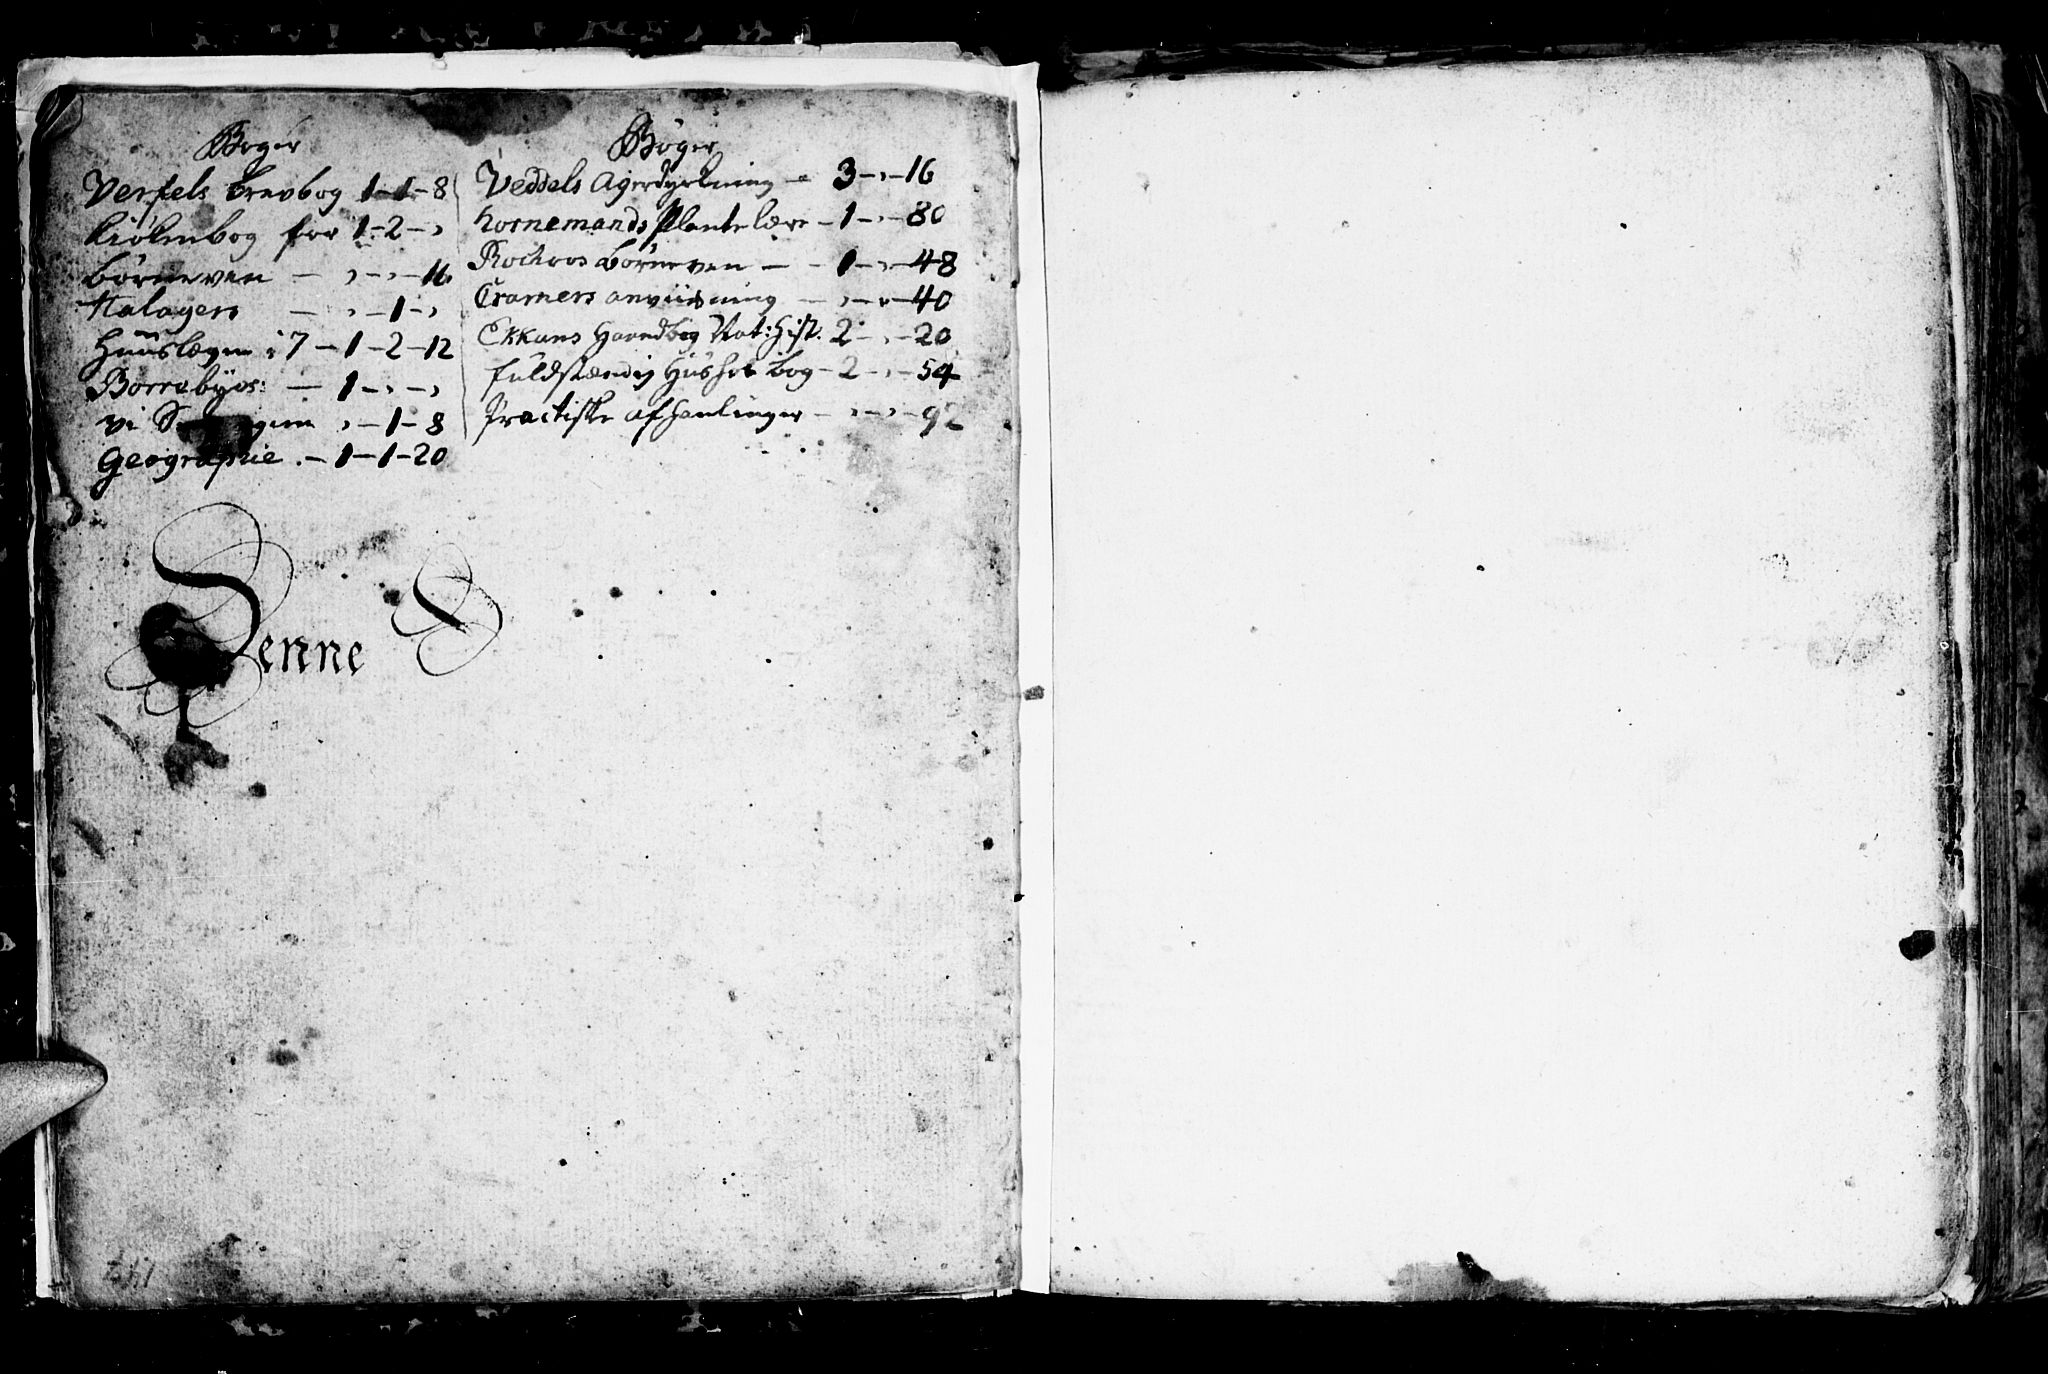 Bøger
Verfels brevbog 1-1-8
kiökenbog for 1-2-,
börneven - , - , -16
Halagers - , -1-,
Huuslægen i 7 - 1-2-12
Borrebyes: - 1-,-,
vi , -1-8
Geographie . - 1-1-20
Bøger
Veddels Agerdyrkning - 3-,-16
hornemands Plantelære - 1-,-80
Rochoos börneven - - 1-,-48
Cramers anviisning - ,-,-40
Ekkans Haandbog Nat: hist. 2-,-20
fuldstændig Hushol bog - 2-,-54
Practiske afhanlinger - ,-,-92
Denne